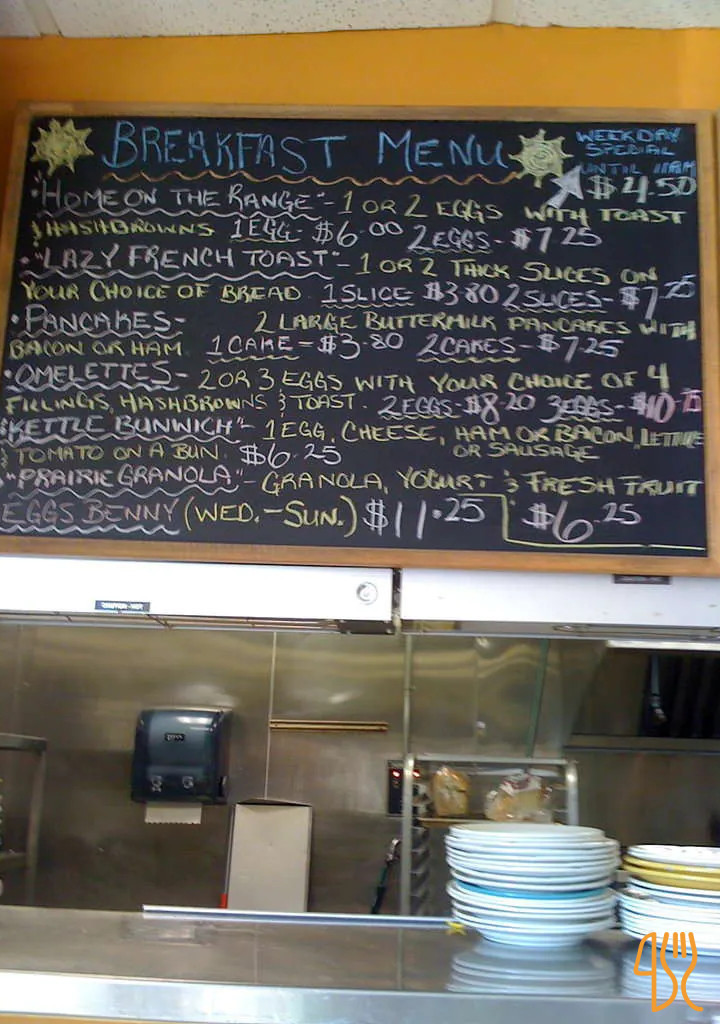 BREAKFAST MENU
WEEKDAY
SPECIAL
UNTIL 11AM
$4.50
• "HOME ON THE RANGE" - 1 OR 2 EGGS WITH TOAST
& HASHBROWNS 1 EGG - $6.00 2 EGGS - $7.25
• "LAZY FRENCH TOAST" - 1 OR 2 THICK SLICES ON
YOUR CHOICE OF BREAD. 1 SLICE $3.80 2 SLICES - $7.25
• PANCAKES - 2 LARGE BUTTERMILK PANCAKES WITH
BACON OR HAM. 1 CAKE - $3.80 2 CAKES - $7.25
• OMELETTES - 2 OR 3 EGGS WITH YOUR CHOICE OF 4
FILLINGS, HASHBROWNS & TOAST. 2 EGGS - $8.20 3 EGGS - $10.75
"KETTLE BUNWICH" - 1 EGG, CHEESE, HAM OR BACON, LETTUCE
OR SAUSAGE
& TOMATO ON A BUN. $6.25
"PRAIRIE GRANOLA" - GRANOLA, YOGURT & FRESH FRUIT
$6.25
EGGS BENNY (WED. - SUN.) $11.25